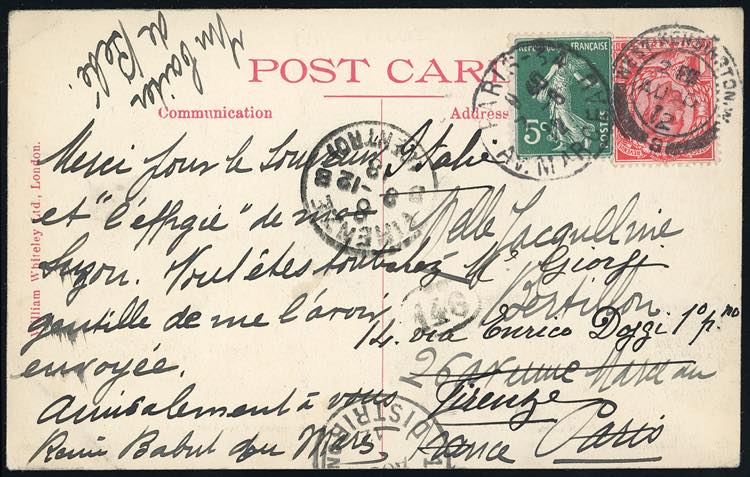 Un baiser
de Bébé.
POST CARD
Communication
Address
William Whiteley Ltd., London.
RÉPUBLIQUE FRANÇAISE
5c
POSTES
PARIS
AV. MARCEAU
WEST KENSINGTON. W.
AU
12
FIRENZE
8-12
Merci pour le souvenir
et "l'effigie" de ma
Suzon. Vous êtes tout
gentille de me l'avoir
envoyée.
Amicalement à vous
René Babut du Marès,
Italie
Melle Jacqueline
chez Mr Giorgi
Bertillon
149
14. via Enrico Poggi 1º p.no
26 avenue Marceau
Firenze
France Paris
DISTRIBON